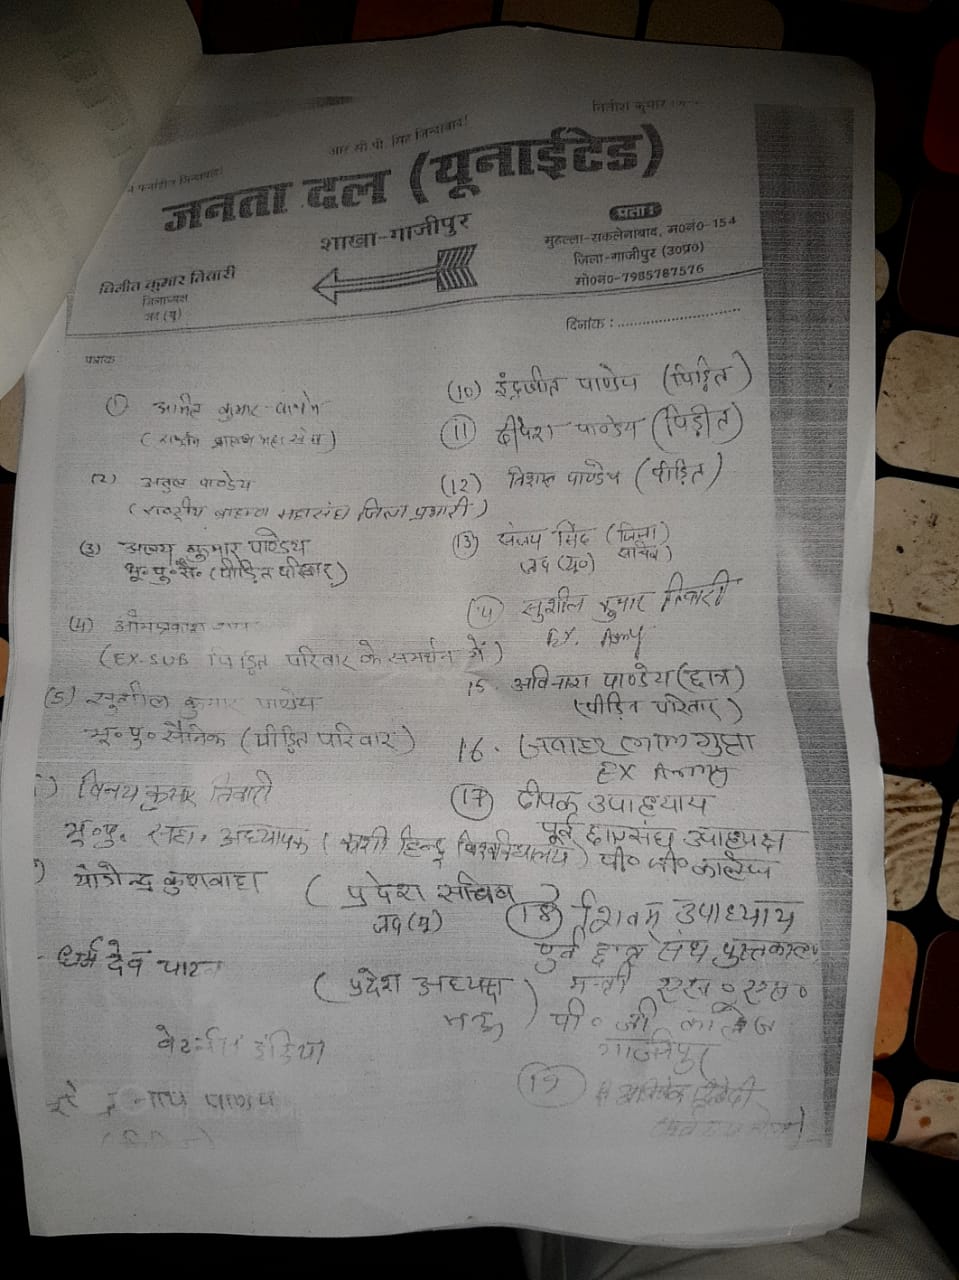 आर सी पी. सिंह जिन्दाबाद!
नितीश कुमार
जनता दल (यूनाईटेड)
शाखा-गाजीपुर
पता :
मुहल्ला-सकलेनाबाद, म०नं०-154
जिला-गाजीपुर (उ०प्र०)
मो०न०-7985787576
विनीत कुमार तिवारी
जिलाध्यक्ष
जद (यू)
दिनांक :
पत्रांक
(1) कुमार
(2) अतुल पाण्डेय
(राष्ट्रीय ब्राह्मण महासंघ जिला प्रभारी)
(3) कुमार पाण्डेय
भू॰पु॰सै॰ (पीड़ित परिवार)
(4) ओमप्रकाश
(EX-SUB पिड़ित परिवार के समर्थन में)
(5) सुशील कुमार पाण्डेय
भू॰पु॰सैनिक (पीड़ित परिवार)
विनय कुमार तिवारी
भू॰पु. सहा. अध्यापक (काशी हिन्दू विश्वविद्यालय)
योगेन्द्र कुशवाहा (प्रदेश सचिव)
जद (यू)
धर्म देव (प्रदेश अध्यक्ष)
इंडिया
पाण्डेय
(10) इंद्रजीत पाण्डेय (पिड़ित)
(11) पाण्डेय (पिड़ीत)
(12) पाण्डेय (पीड़ित)
(13) संजय सिंह (जिला सचिव)
जद (यू०)
(14) सुशील कुमार तिवारी
Ex. Army
15. अविनाश पाण्डेय (छात्र)
(पीड़ित परिवार)
16. जवाहर लाल गुप्ता
EX Army
(17) दीपक उपाध्याय
पूर्व छात्रसंघ उपाध्यक्ष
पी॰ जी॰ कालेज
(18) शिवम उपाध्याय
पूर्व छात्र संघ पुस्तकालय
मन्त्री
पी॰ जी कालेज
गाजीपुर
(19)